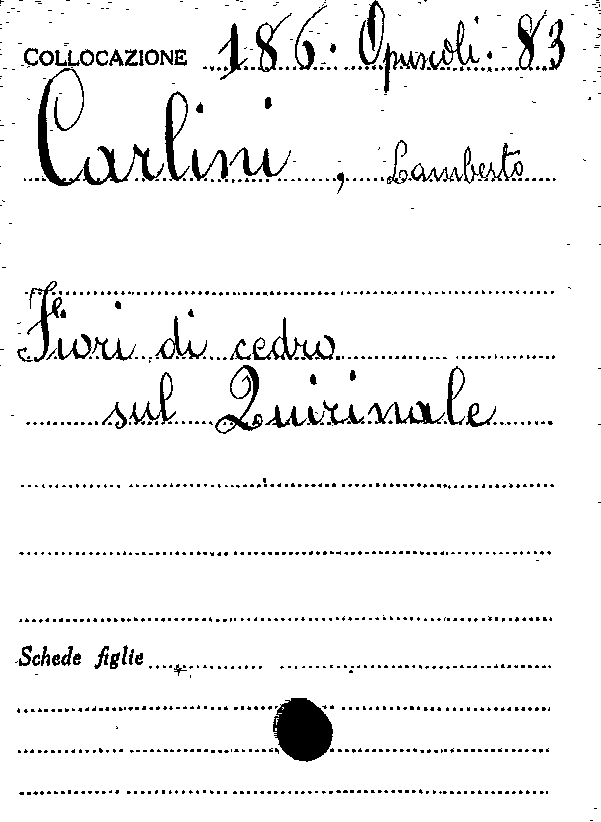 COLLOCAZIONE 186. Opuscoli. 83
Carlini, Lamberto
Fiori di cedro
sul Quirinale
Schede figlie